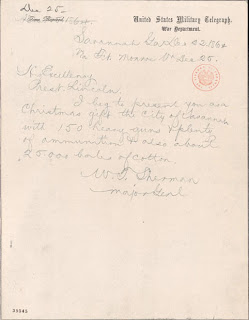 Dec 25
United States Military Telegraph.
War Department.
Savannah Ga Dec 22 1864
Via Ft. Monroe Va Dec 25.
His Excellency
Prest Lincoln.
I beg to present you as a
Christmas gift the City of Savannah
with 150 heavy guns & plenty
of ammunition & also about
25000 bales of cotton.
W. T. Sherman
Major Genl